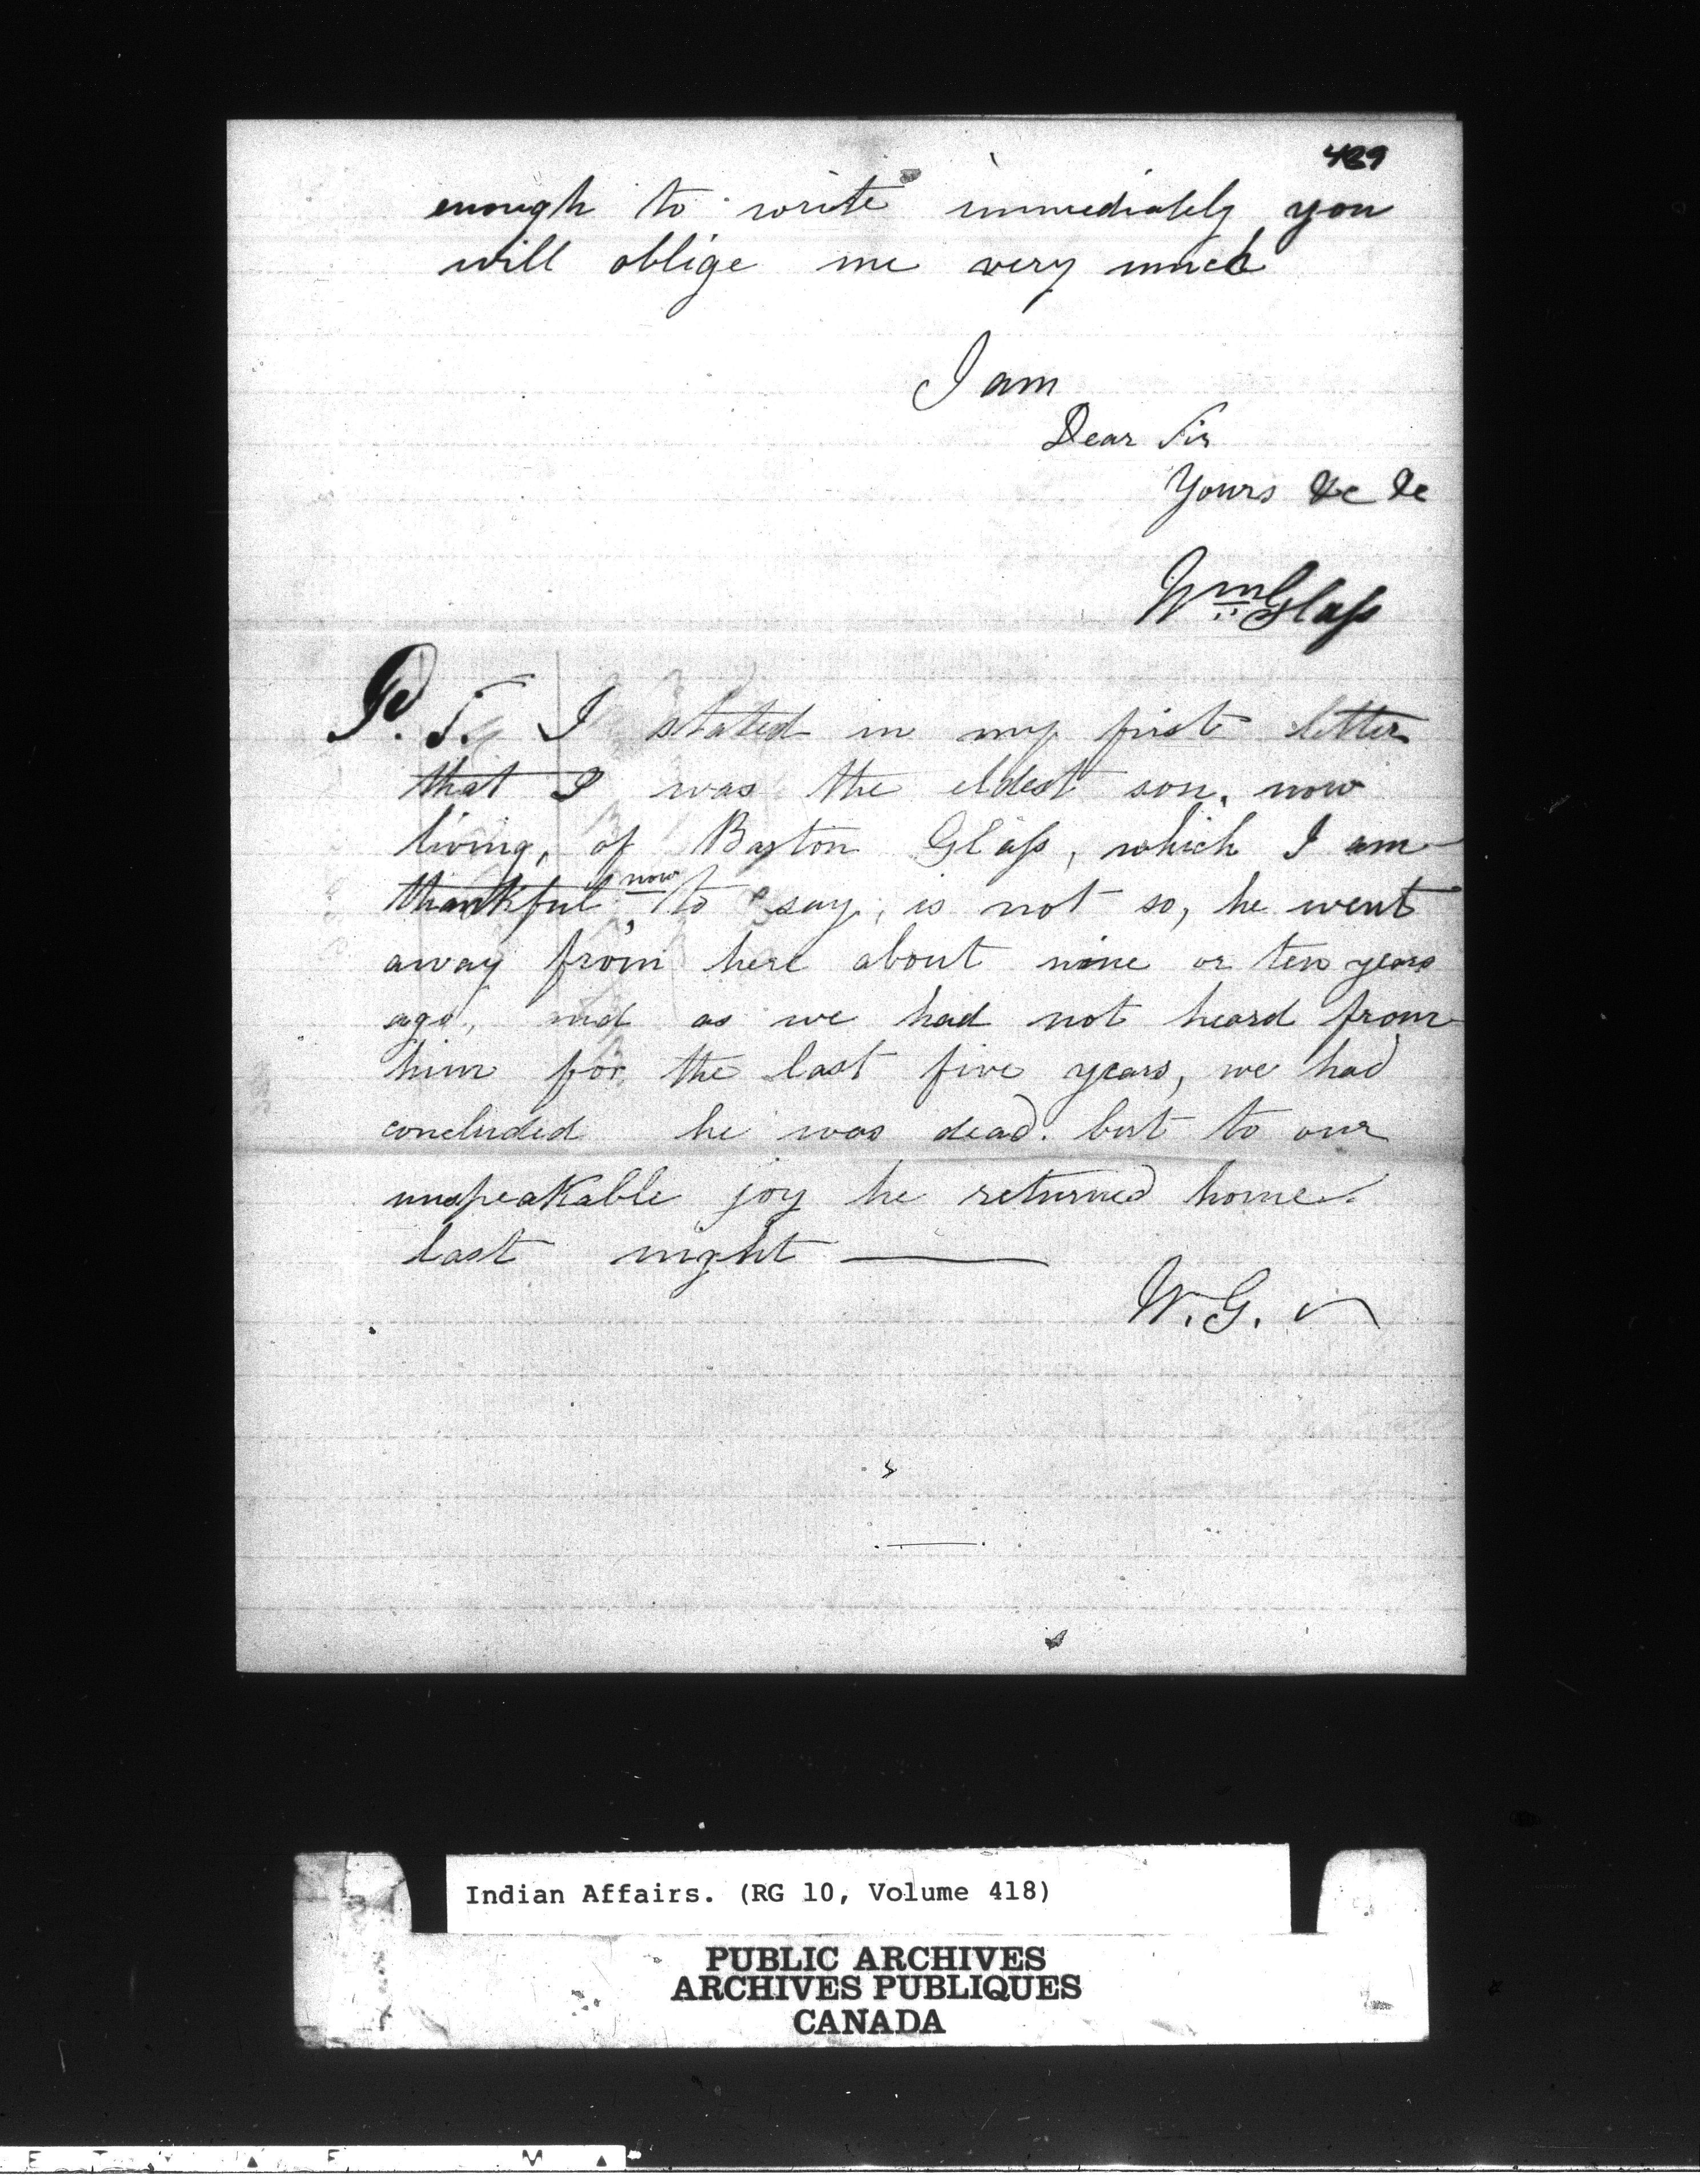 439
enough to write immediately you
will oblige me very much
I am
Dear Sir
Yours &c &c
Wm Glass
P.S. I stated in my first letter
that I was the eldest son, now
living, of Glass, which I am
thankful now to say, is not so, he went
away from here about nine or ten years
ago, and as we had not heard from
him for the last five years, we had
concluded he was dead. but to our
unspeakable joy he returned home
last night ———
W.G.
Indian Affairs. (RG 10, Volume 418)
PUBLIC ARCHIVES
ARCHIVES PUBLIQUES
CANADA